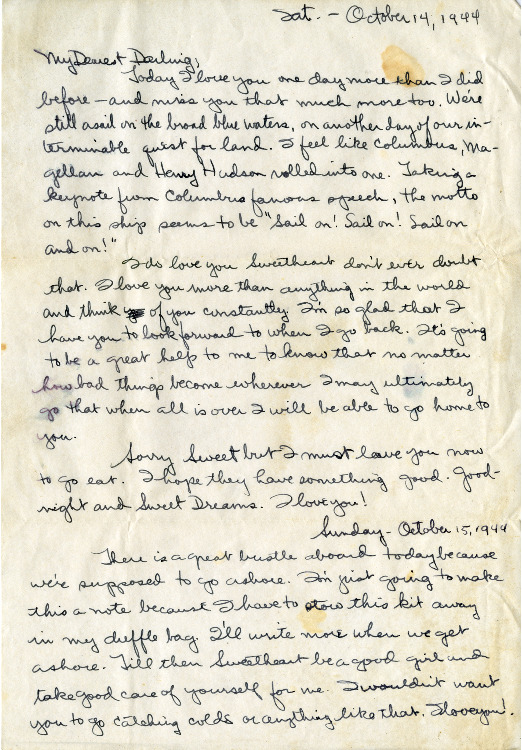 Sat. - October 14, 1944
My Dearest Darling,
Today I love you one day more than I did
before - and miss you that much more too. We're
still asail on the broad blue waters, on another day of our in-
terminable quest for land. I feel like Columbus, Ma-
gellan and Henry Hudson rolled into one. Taking a
keynote from Columbus famous speech, the motto
on this ship seems to be "Sail on! Sail on! Sail on
and on!"
I do love you Sweetheart don't ever doubt
that. I love you more than anything in the world
and think of you constantly. I'm so glad that I
have you to look forward to when I go back. It's going
to be a great help to me to know that no matter
how bad things become wherever I may ultimately
go that when all is over I will be able to go home to
you.
Sorry Sweet but I must leave you now
to go eat. I hope they have something good. Good-
night and Sweet Dreams. I love you!
Sunday - October 15, 1944
There is a great bustle aboard today because
we're supposed to go ashore. I'm just going to make
this a note because I have to stow this kit away
in my duffle bag. I'll write more when we get
ashore. Till then Sweetheart be a good girl and
take good care of yourself for me. I wouldn't want
you to go catching colds or anything like that. I love you!